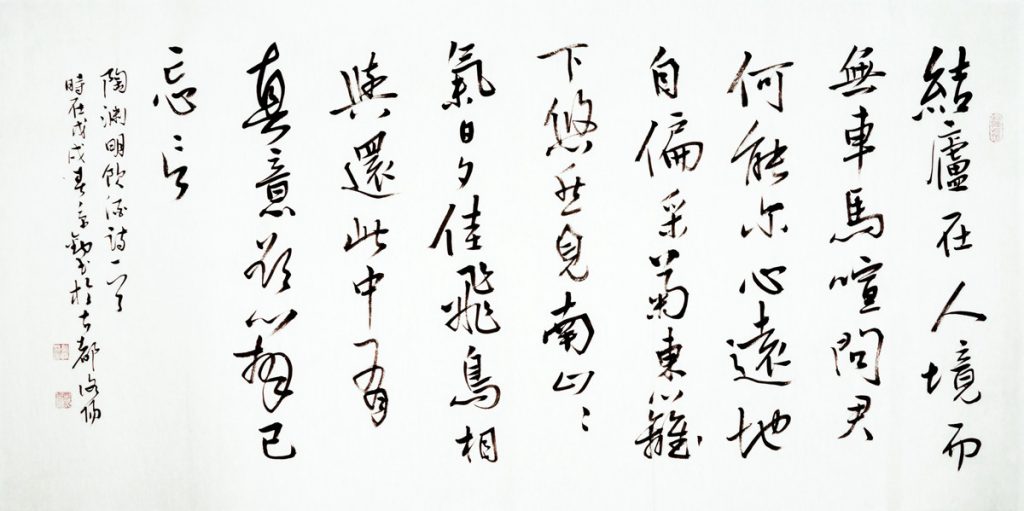 結廬在人境而
無車馬喧問君
何能尔心遠地
自偏采菊東籬
下悠然見南山〻
氣日夕佳飛鳥相
與還此中有
真意欲辨已
忘言
陶渊明飲酒詩一首
時在戊戌春书於古都洛阳